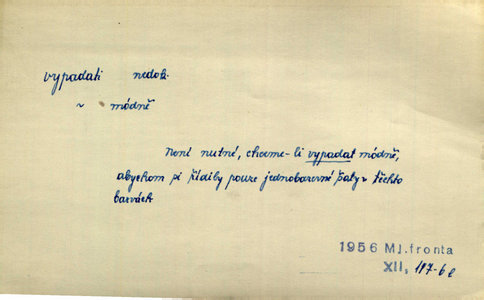 vypadati nedok.
~ módně
Není nutné, chceme-li vypadat módně,
abychom si řídily pouze jednobarevné šaty v těchto
barvách
1956 Ml. fronta
XII, 117-6